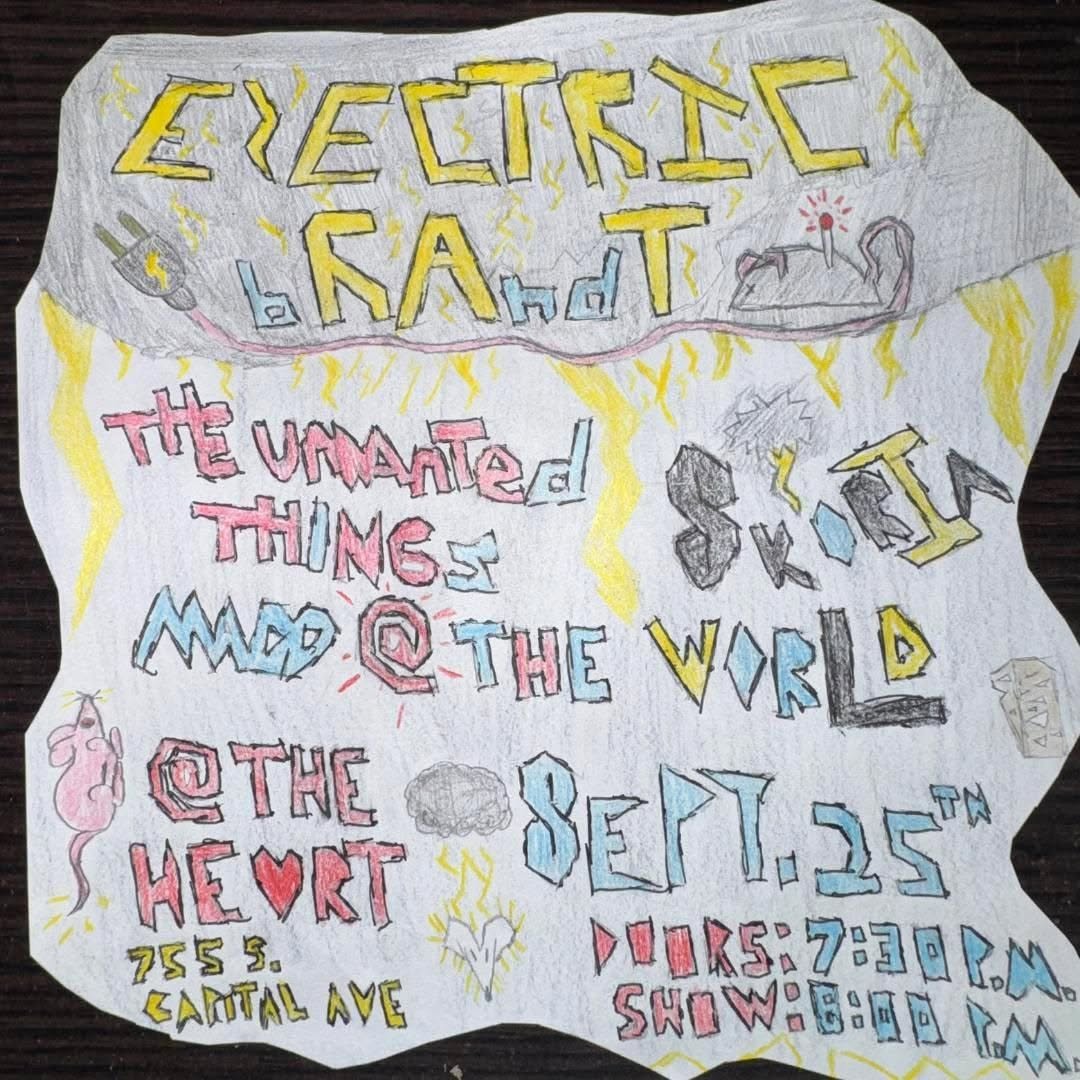 ELECTRIC
bRAndT
THE UNWAnTed
THINGS
MADD @ THE WORLD
@ THE
HE♥RT
755 S.
CAPITAL AVE
SEPT. 25TH
DOORS: 7:30 P.M.
SHOW: 8:00 P.M.